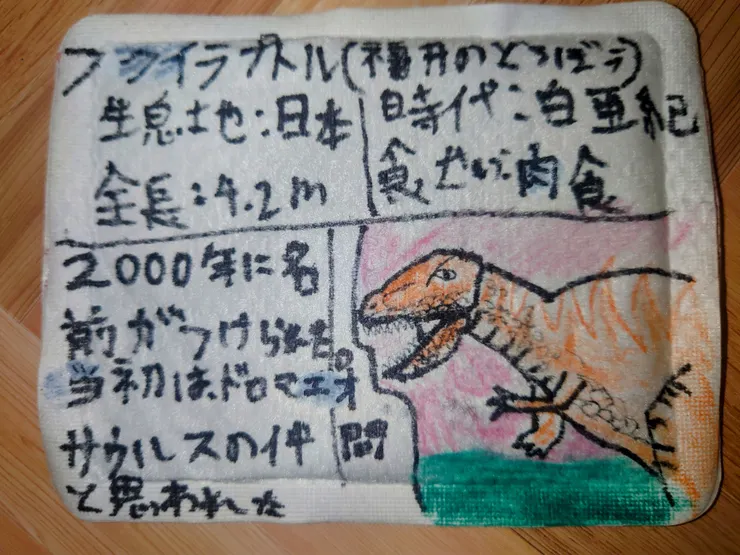 フクイラプトル(福井のどろぼう)
生息土地:日本
時代:白亜紀
全長:4.2m
食せい:肉食
2000年に名
前がつけられた。
当初は、ドロマエオ
サウルスの仲間
と思われた